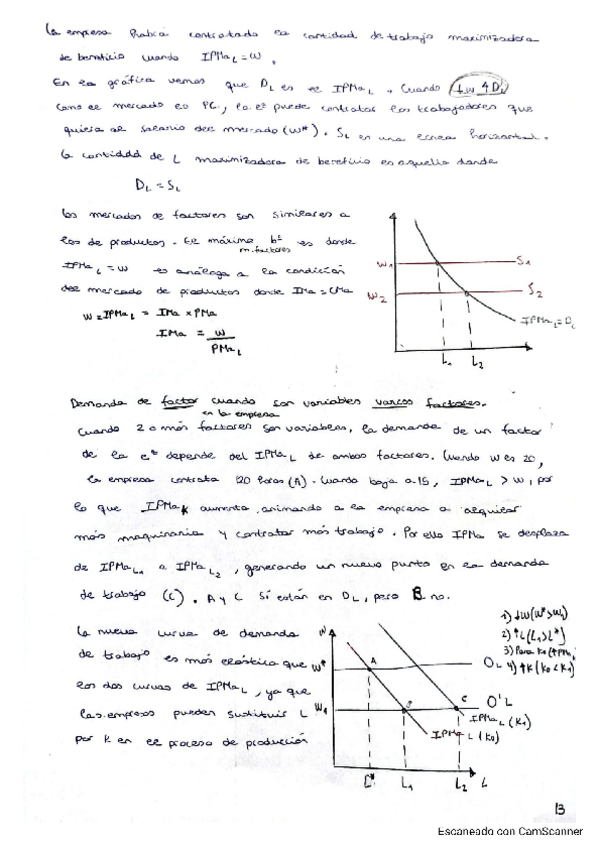 La empresa habrá contratado la cantidad de trabajo maximizadora
de beneficio cuando IPMa L = W.
En la gráfica vemos que D L es el IPMa L. Cuando ↓w ↑D L
Como el mercado es PC, la eª puede contratar los trabajadores que
quiera al salario del mercado (W*). S L es una línea horizontal.
la cantidad de L maximizadora de beneficio es aquella donde
D L = S L
los mercados de factores son similares a
los de productos. El máximo bº es donde
m.factores
IPMa L = W es análoga a la condición
del mercado de productos donde IMa = CMa
W = IPMa L = IMa x PMa
IMa = W / PMa L
W1
S1
W2
S2
IPMa L = D L
L1 L2
Demanda de factor cuando son variables varios factores.
en la empresa
Cuando 2 o más factores son variables, la demanda de un factor
de la eª depende del IPMa L de ambos factores. Cuando W es 20,
la empresa contrata 120 horas (A). Cuando baja a 15, IPMa L > W, por
lo que IPMa K aumenta, animando a la empresa a alquilar
más maquinaria y contratar más trabajo. Por ello IPMa se desplaza
de IPMa L1 a IPMa L2, generando un nuevo punto en la demanda
de trabajo (C). A y C sí están en D L, pero B no.
la nueva curva de demanda
de trabajo es más elástica que
los dos curvas de IPMa L, ya que
las empresas pueden sustituir L
por K en el proceso de producción
1) ↓W (W* > W1)
2) ↑L (L1 > L*)
3) Para K0 (↑PMa
4) ↑K (K0 < K1)
W
W*
A
O L
W1
B
C
O' L
IPMa L (K1)
IPMa L (K0)
L* L1 L2 L
13
Escaneado con CamScanner